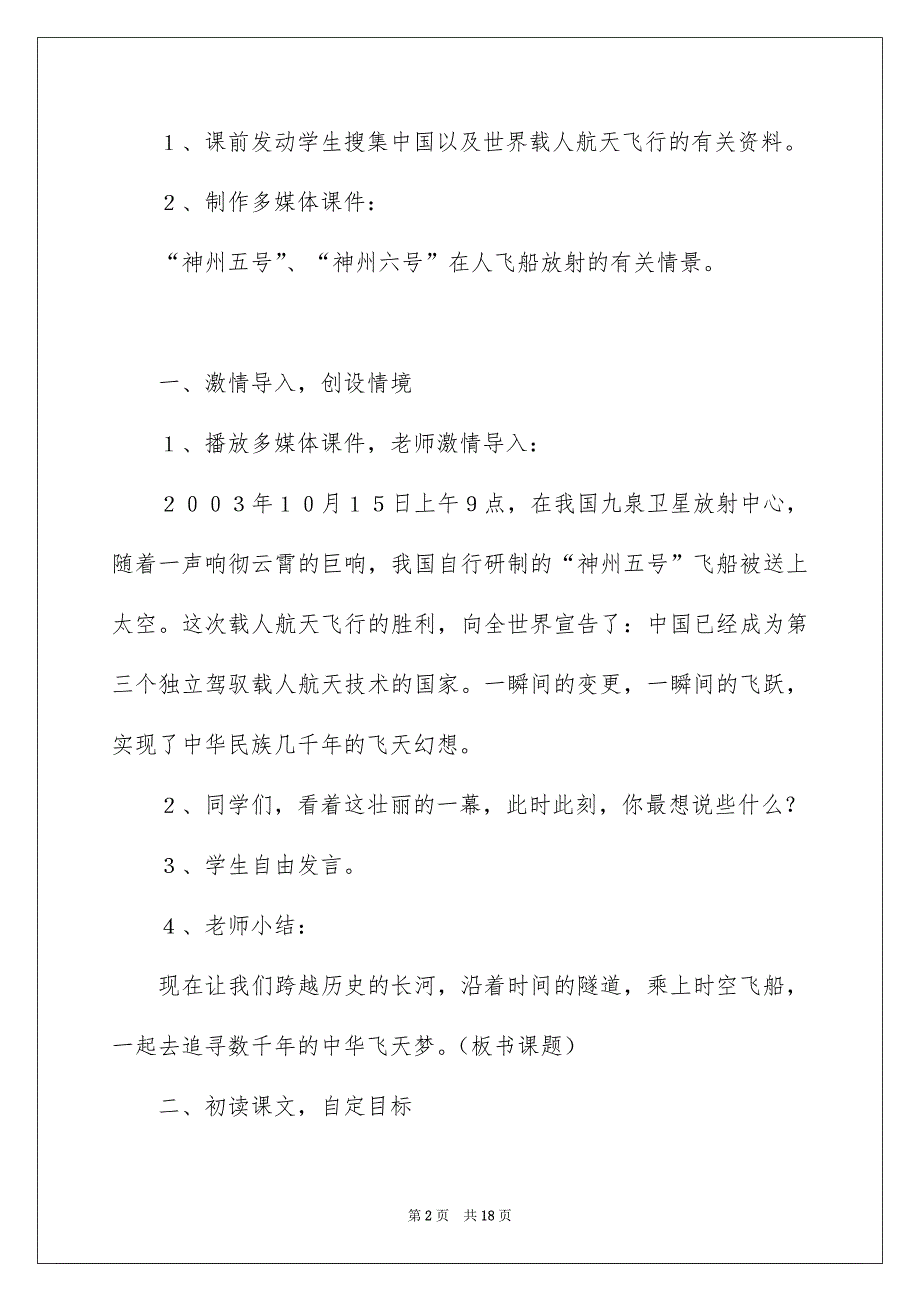 １、课前发动学生搜集中国以及世界载人航天飞行的有关资料。
２、制作多媒体课件：
“神州五号”、“神州六号”在人飞船放射的有关情景。
一、激情导入，创设情境
１、播放多媒体课件，老师激情导入：
２００３年１０月１５日上午９点，在我国九泉卫星放射中心，
随着一声响彻云霄的巨响，我国自行研制的“神州五号”飞船被送上
太空。这次载人航天飞行的胜利，向全世界宣告了：中国已经成为第
三个独立驾驭载人航天技术的国家。一瞬间的变更，一瞬间的飞跃，
实现了中华民族几千年的飞天幻想。
２、同学们，看着这壮丽的一幕，此时此刻，你最想说些什么？
３、学生自由发言。
４、老师小结：
现在让我们跨越历史的长河，沿着时间的隧道，乘上时空飞船，
一起去追寻数千年的中华飞天梦。（板书课题）
二、初读课文，自定目标
第 2 页 共 18 页